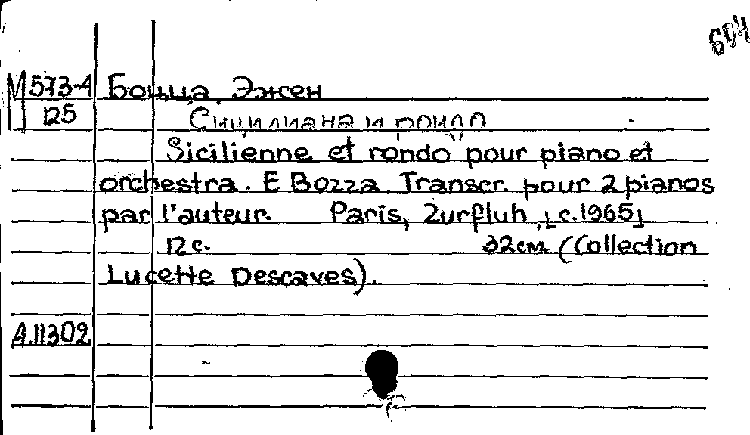 694
М 573-4 Боцца, Эжен
125 Сицилиана и рондо
Sicilienne et rondo pour piano et
orchestra. E Bozza. Transcr. pour 2 pianos
par l'auteur. Paris, Zurfluh, [c.1965]
12 с. 32см (Collection
Lucette Descaves).
А.11302